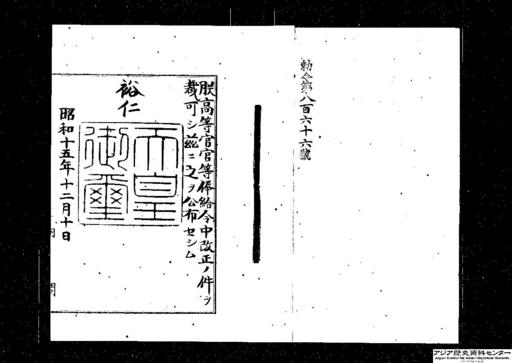 勅令第八百六十六號
朕高等官官等俸給令中改正ノ件ヲ
裁可シ茲ニ之ヲ公布セシム
裕仁
天皇
御璽
昭和十五年十二月十日
アジア歴史資料センター
Japan Center for Asian Historical Records